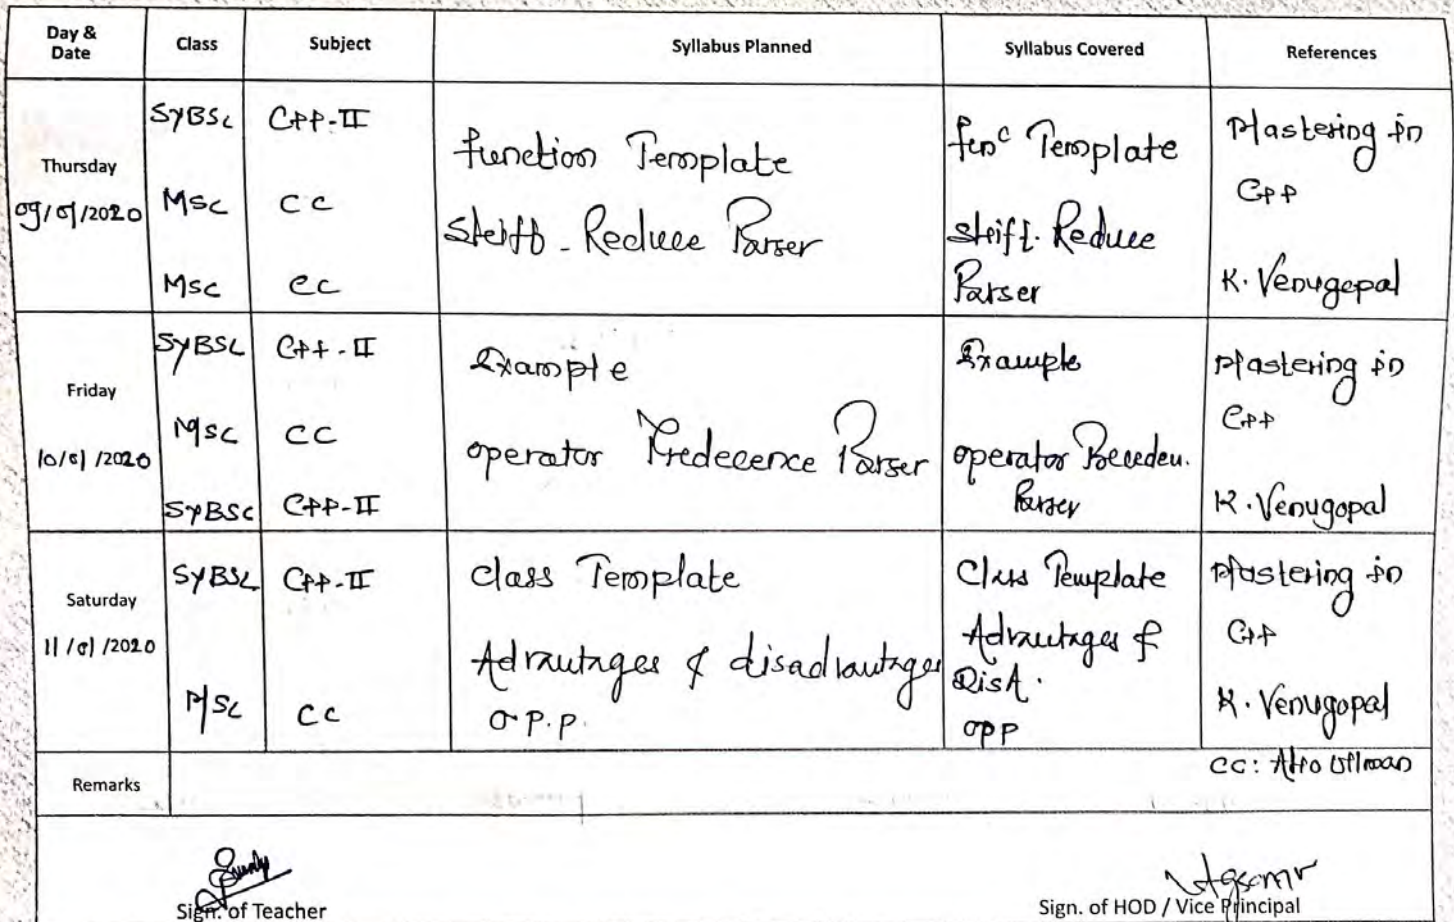 Day & Date Class Subject Syllabus Planned Syllabus Covered References
Thursday
09/01/2020
SYBSc CPP-II
MSc CC
MSc CC
function Template
Shift-Reduce Parser
func Template
Shift-Reduce
Parser
Mastering in
CPP
K. Venugopal
Friday
10/01/2020
SYBSc CPP-II
MSc CC
SYBSc CPP-II
Example
operator Predecence Parser
Example
operator Preceden.
Parser
Mastering in
CPP
K. Venugopal
Saturday
11/01/2020
SYBSc CPP-II
MSc CC
class Template
Advantages & disadvantages
O.P.P.
Class Template
Advantages &
DisA.
OPP
Mastering in
CPP
K. Venugopal
CC: Aho Ullman
Remarks
Sign. of Teacher
Sign. of HOD / Vice Principal